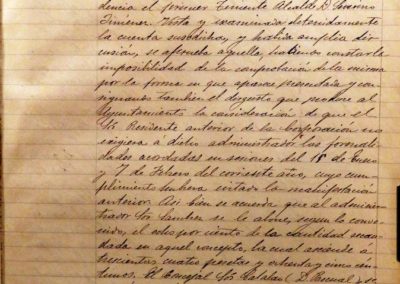 dencia el primer Teniente Alcalde D. Severino
Jimenez. Vista y examinada detenidamente
la cuenta susodicha, y habida amplia dis
cusión, se aprueba aquella, haciendo constar la
imposibilidad de la comprobación de la misma
por la forma en que aparece presentada y con
signando tambien el disgusto que produce al
Ayuntamiento la consideración de que el
Sr. Presidente anterior de la Corporación no
exigiera á dicho administrador las formali
dades acordadas en sesiones del 18 de Enero
y 7 de Febrero del corriente año, cuyo cum
plimiento hubiera evitado la manifestación
anterior. Asi bien se acuerda que al adminis
trador Sr. se le abone, segun lo conve
nido, el ocho por ciento de la cantidad recau
dada en aquel concepto, la cual asciende á
trescientas cuatro pesetas y ochenta y cinco cen
timos. El Concejal Sr. Catalan (D. Pascual)